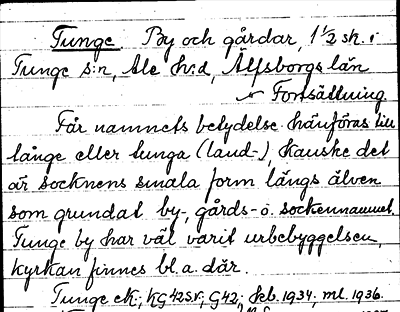 Tunge By och gårdar, 1 1/2 sk. i
Tunge s:n, Ale h:d, Älfsborgs län
Fortsättning
Får namnets betydelse hänföras till
tånge eller tunga (land-), kanske det
är socknens smala form längs älven
som grundat by-, gårds- o. sockennamnet.
Tunge by har väl varit urbebyggelsen,
kyrkan finnes bl.a. där.
Tunge ek.; KG42SV; G42; Geb. 1934; ml. 1936.